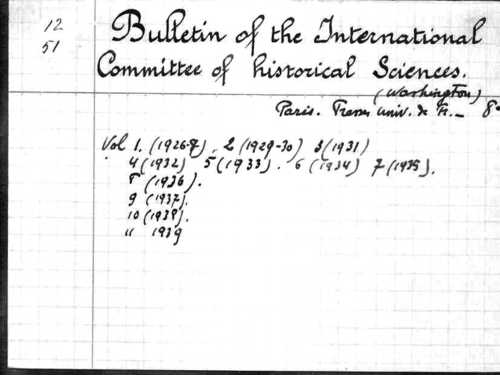 12
51
Bulletin of the International
Committee of historical Sciences.
(Washington)
Paris. Presses Univ. de Fr. _ 8°
Vol 1. (1926-8). 2 (1929-30) 3 (1931)
4 (1932) 5 (1933). 6 (1934) 7 (1935).
8 (1936).
9 (1937).
10 (1938).
11 1939